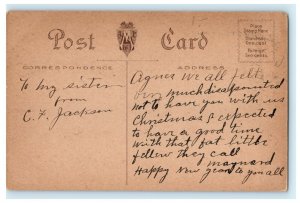 Post Card
Place
Stamp Here
Domestic
One cent
Foreign
two cents
CORRESPONDENCE
ADDRESS
To my sister
from
C. F. Jackson
Agnes we all felt
very much disappointed
not to have you with us
Christmas & expected
to have a good time
with that fat little
fellow they call
maynard
Happy New year to you all